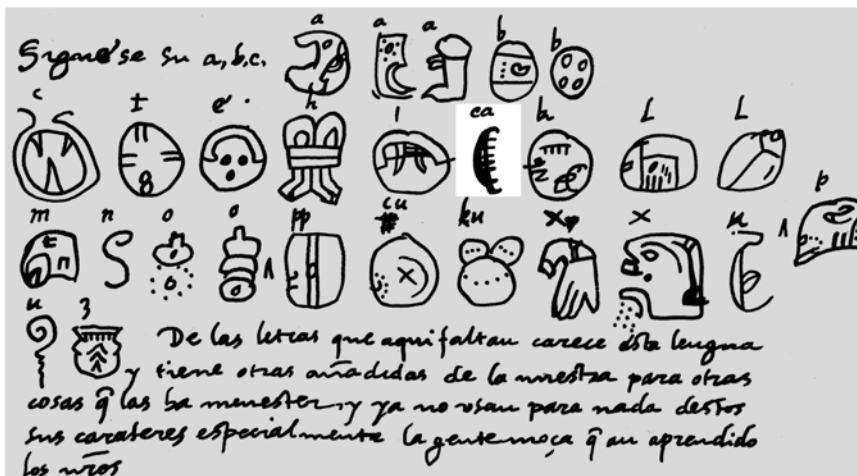 Sigue se su a, b, c. a a a b b
c t e h i ca k L L
m n o o pp cu ku x x u p
u z De las letras que aqui faltan carece esta lengua
y tiene otras añadidas de la nuestra para otras
cosas q̃ las ha menester, y ya no usan para nada destos
sus carateres especialmente la gente moça q̃ an aprendido
los nr̃os